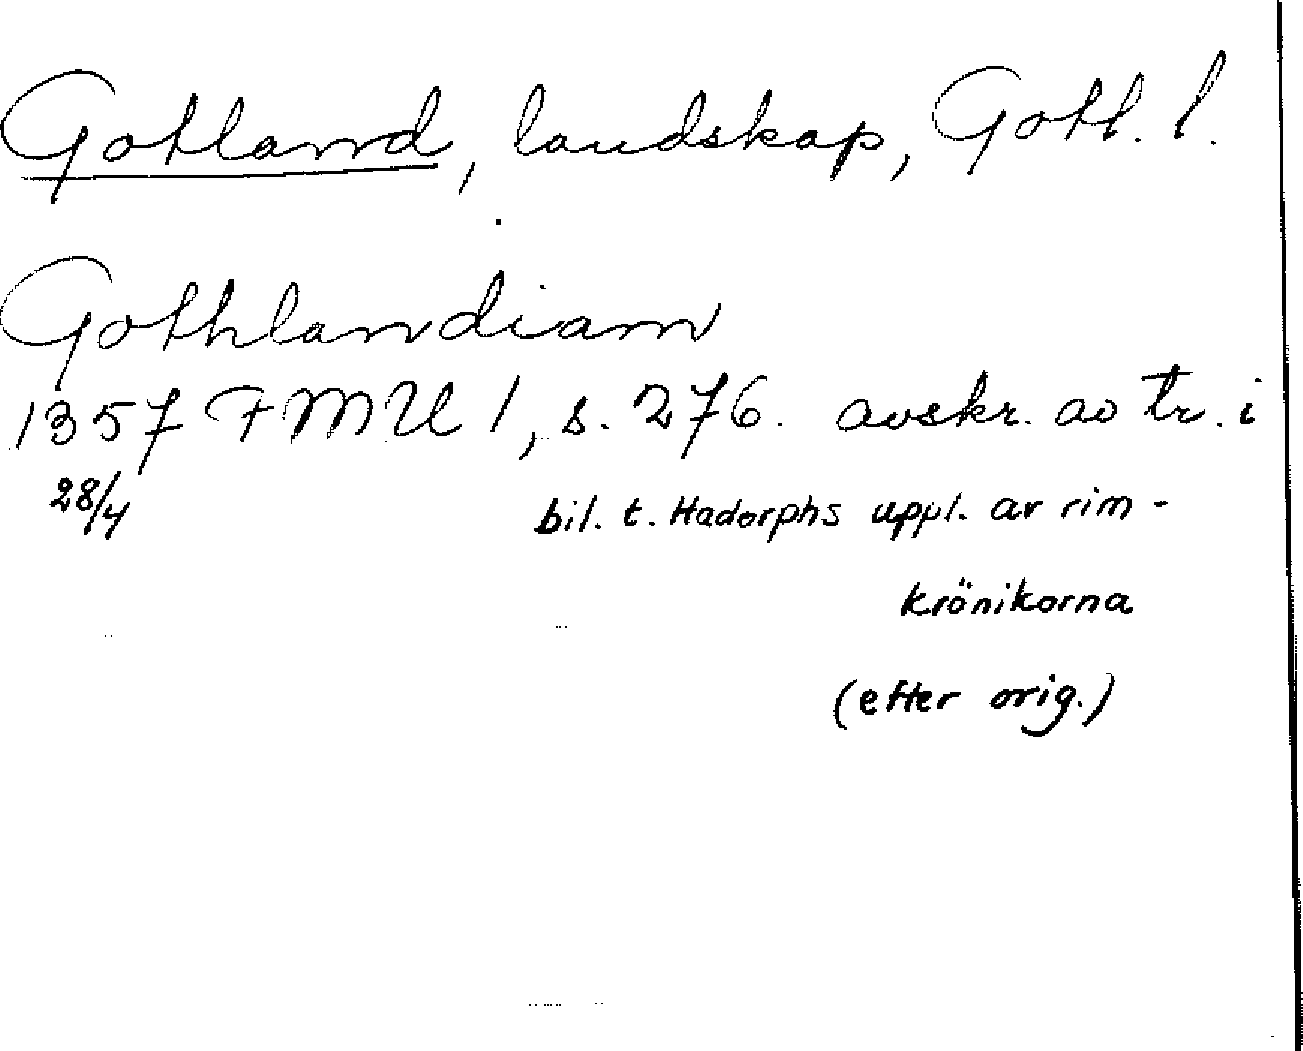 Gotland, landskap, Gotl. l.
Gothlandiam
1357 FMU 1, s. 276. avskr. av tr. i
28/4 bil. t. Hadorphs uppl. av rim-
krönikorna
(efter orig.)